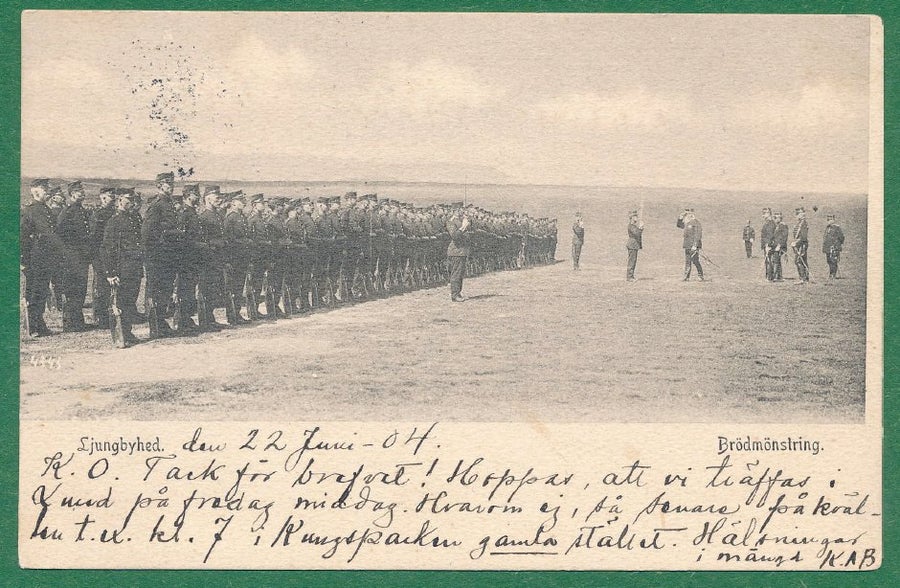 4848
Ljungbyhed. den 22 Juni - 04. Brödmönstring.
K. O. Tack för brefvet! Hoppas, att vi träffas i
Lund på fredag middag. Hvarom ej, så senare på kväl-
len t. ex. kl. 7 i Kungsparken gamla stället. Hälsningar
i mängd K. A B